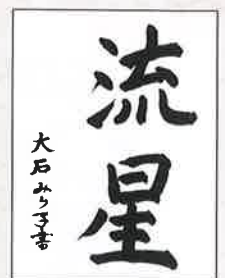 流星
大石みら子書